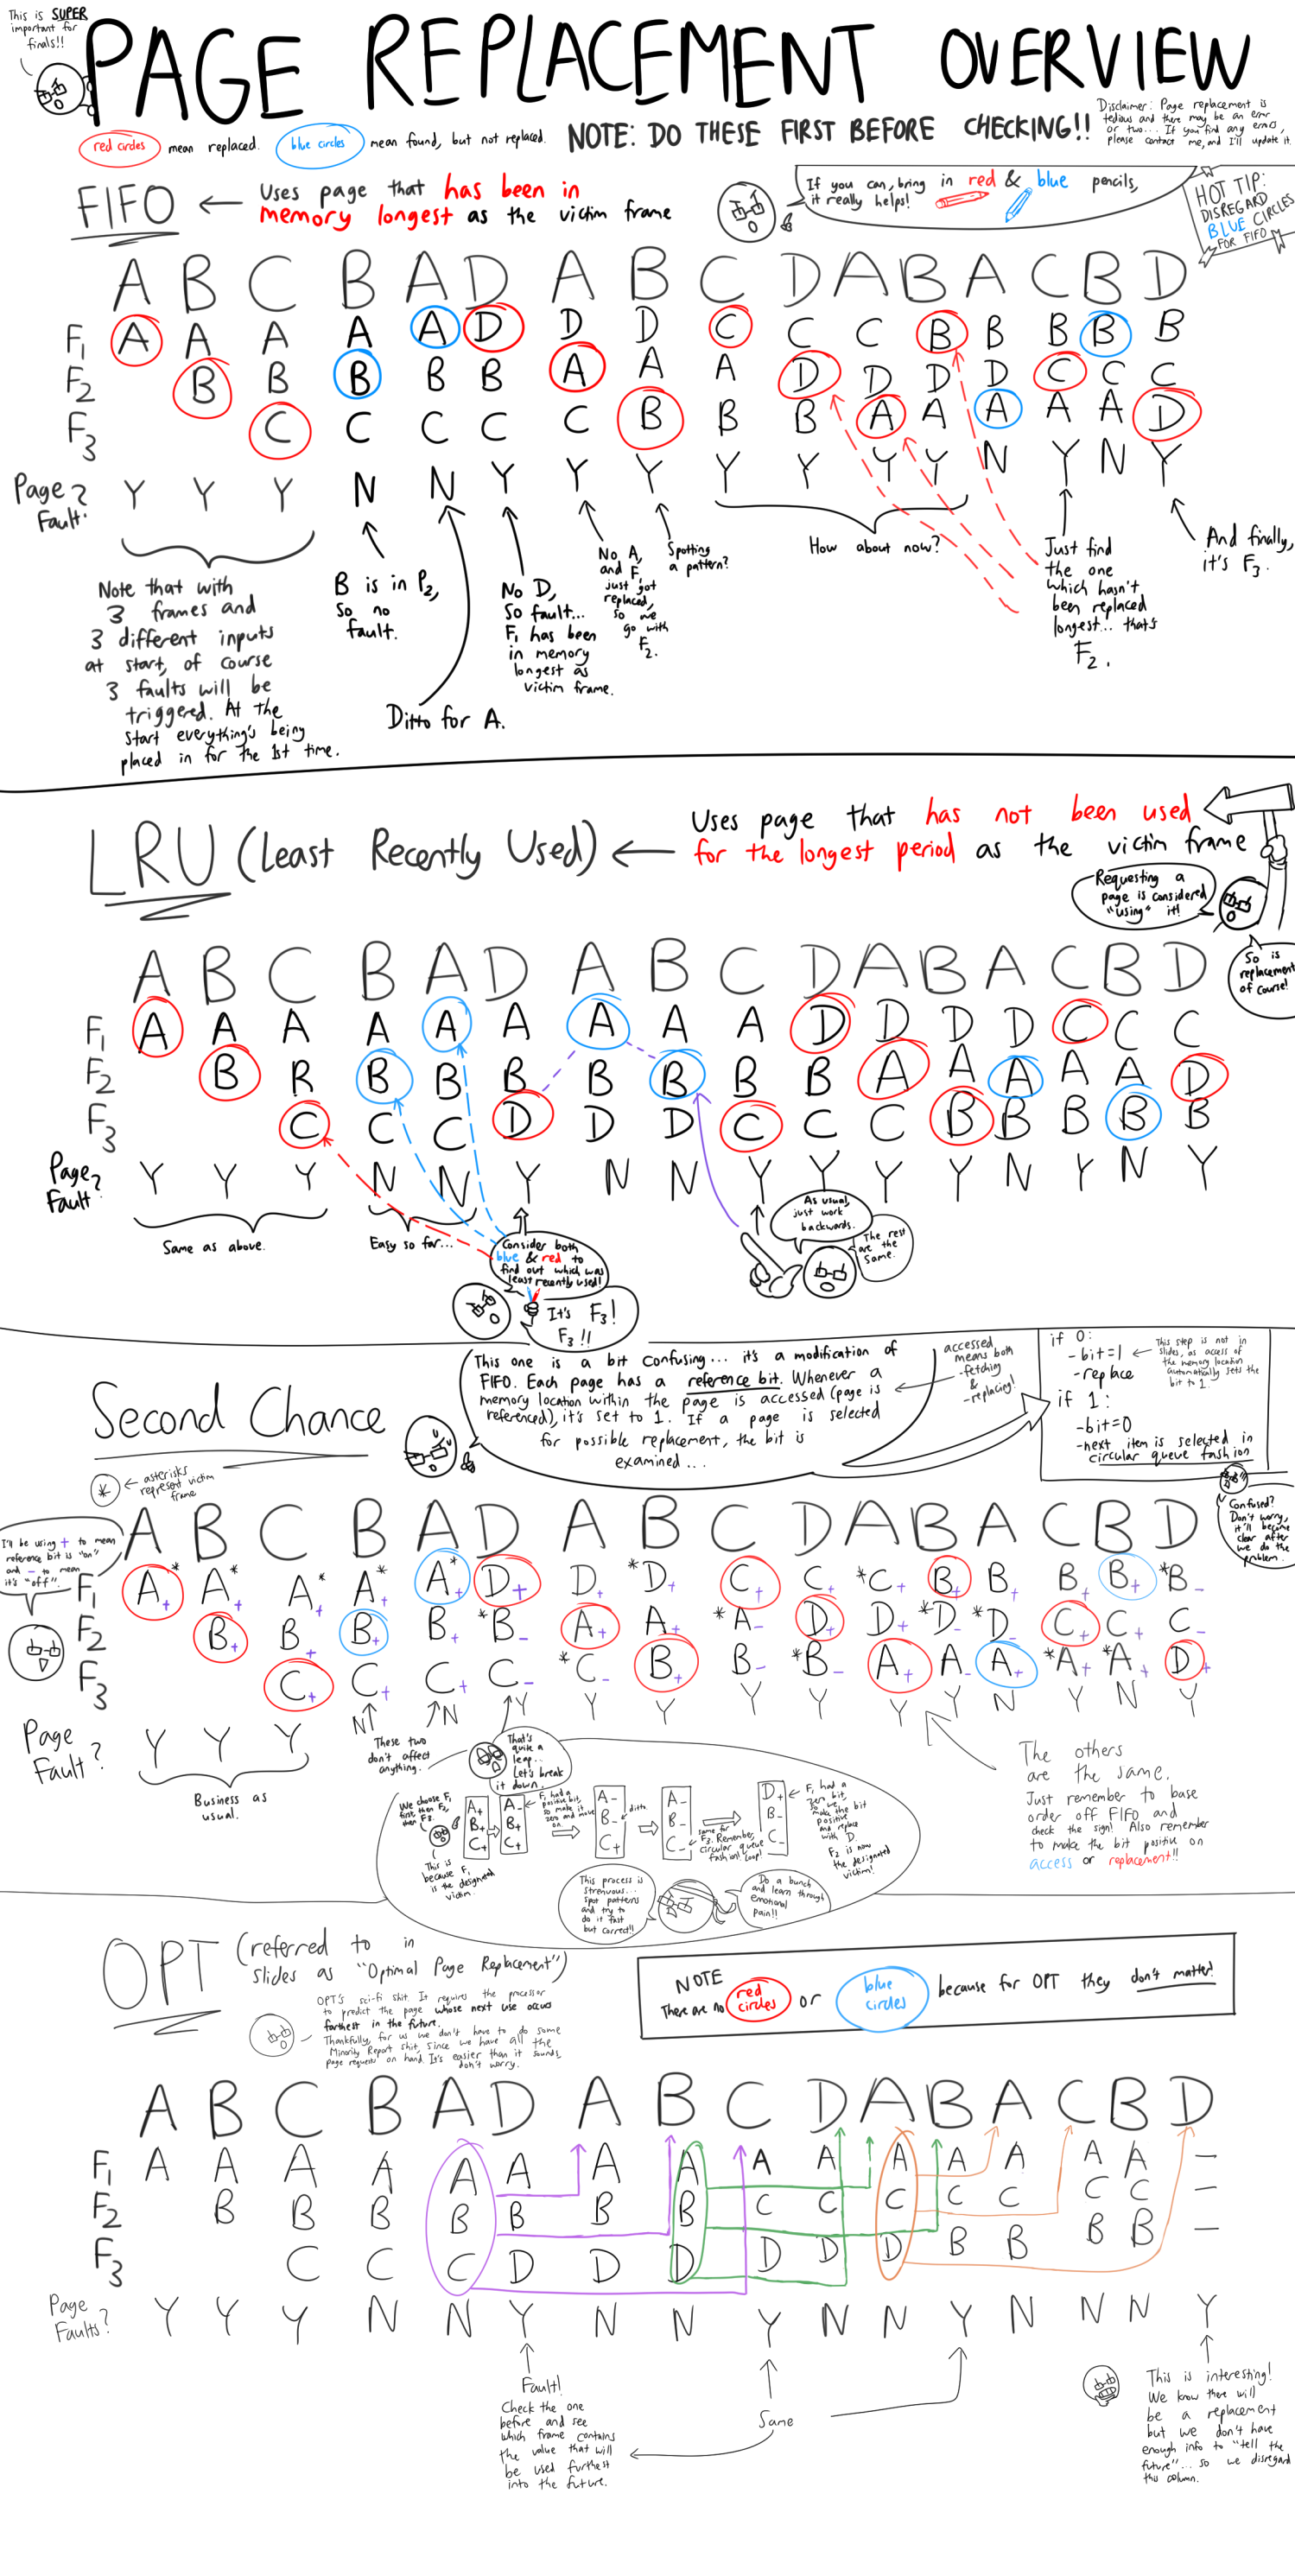 This is SUPER
important for
finals!!
PAGE REPLACEMENT OVERVIEW
red circles mean replaced. blue circles mean found, but not replaced. NOTE: DO THESE FIRST BEFORE CHECKING!!
Disclaimer: Page replacement is
tedious and there may be an error
or two... If you find any errors,
please contact me, and I'll update it.
FIFO ← Uses page that has been in
memory longest as the victim frame
If you can, bring in red & blue pencils,
it really helps!
HOT TIP:
DISREGARD
BLUE CIRCLES
FOR FIFO
A B C B A D A B C D A B A C B D
F1 A A A A A D D D C C C B B B B B
F2 B B B B B A A A D D D D C C C
F3 C C C C C B B B A A A A A D
Page Fault? Y Y Y N N Y Y Y Y Y Y Y N Y N Y
Note that with
3 frames and
3 different inputs
at start, of course
3 faults will be
triggered. At the
start everything's being
placed in for the 1st time.
B is in P2,
so no
fault.
Ditto for A.
No D,
so fault...
F1 has been
in memory
longest as
victim frame.
No A,
and F1
just got
replaced,
so we
go with
F2.
Spotting
a pattern?
How about now?
Just find
the one
which hasn't
been replaced
longest... that's
F2.
And finally,
it's F3.
LRU (Least Recently Used) ← Uses page that has not been used
for the longest period as the victim frame
Requesting a
page is considered
"using" it!
So is
replacement
of course!
A B C B A D A B C D A B A C B D
F1 A A A A A A A A A D D D D C C C
F2 B B B B B B B B B A A A A A D
F3 C C C D D D C C C B B B B B
Page Fault? Y Y Y N N Y N N Y Y Y Y N Y N Y
Same as above.
Easy so far...
Consider both
blue & red to
find out which was
least recently used!
It's F3!
F3!!
As usual,
just work
backwards.
The rest
are the
same.
Second Chance
This one is a bit confusing... it's a modification of
FIFO. Each page has a reference bit. Whenever a
memory location within the page is accessed (page is
referenced), it's set to 1. If a page is selected
for possible replacement, the bit is
examined...
accessed
means both
-fetching
&
-replacing!
if 0:
-bit=1
-replace
if 1:
-bit=0
-next item is selected in
circular queue fashion
This step is not in
slides, as access of
the memory location
automatically sets the
bit to 1.
Confused?
Don't worry,
it'll become
clear after
we do the
problem.
* ← asterisks
represent victim
frame
I'll be using + to mean
reference bit is "on"
and - to mean
it's "off".
A B C B A D A B C D A B A C B D
F1 A+ A+* A+* A+* A+* D+ D+ *D+ C+ C+ *C+ B+ B+ B+ B+ *B-
F2 B+ B+ B+ B+ *B- A+ A+ *A- D+ D+ *D- *D- C+ C+ C-
F3 C+ C+ C+ C- *C- B+ B- *B- A+ A- A+ *A+ *A+ D+
Page Fault? Y Y Y N N Y Y Y Y Y Y Y N Y N Y
Business as
usual.
These two
don't affect
anything.
That's
quite a
leap...
Let's break
it down.
We choose F1
first, then F2,
then F3.
This is
because F1
is the designated
victim.
A+
B+
C+
A-
B+
C+
F1 had a
positive bit,
so make it
zero and move
on.
A-
B-
C+
ditto.
A-
B-
C-
same for
F3. Remember,
circular queue
fashion! Loop!
D+
B-
C-
F1 had a
zero bit,
so we
make the bit
positive
and replace
with D.
F2 is now
the designated
victim!
This process is
strenuous...
spot patterns
and try to
do it fast
but correct!!
Do a bunch
and learn through
emotional
pain!!
The others
are the same.
Just remember to base
order off FIFO and
check the sign! Also remember
to make the bit positive on
access or replacement!!
OPT (referred to in
slides as "Optimal Page Replacement")
OPT's sci-fi shit. It requires the processor
to predict the page whose next use occurs
farthest in the future.
Thankfully, for us we don't have to do some
Minority Report shit, since we have all the
page requests on hand. It's easier than it sounds,
don't worry.
NOTE
There are no red circles or blue circles because for OPT they don't matter!
A B C B A D A B C D A B A C B D
F1 A A A A A A A A A A A A A A A -
F2 B B B B B B B C C C C C C C -
F3 C C C D D D D D D B B B B -
Page Faults? Y Y Y N N Y N N Y N N Y N N N Y
Fault!
Check the one
before and see
which frame contains
the value that will
be used furthest
into the future.
Same
This is interesting!
We know there will
be a replacement
but we don't have
enough info to "tell the
future"... so we disregard
this column.